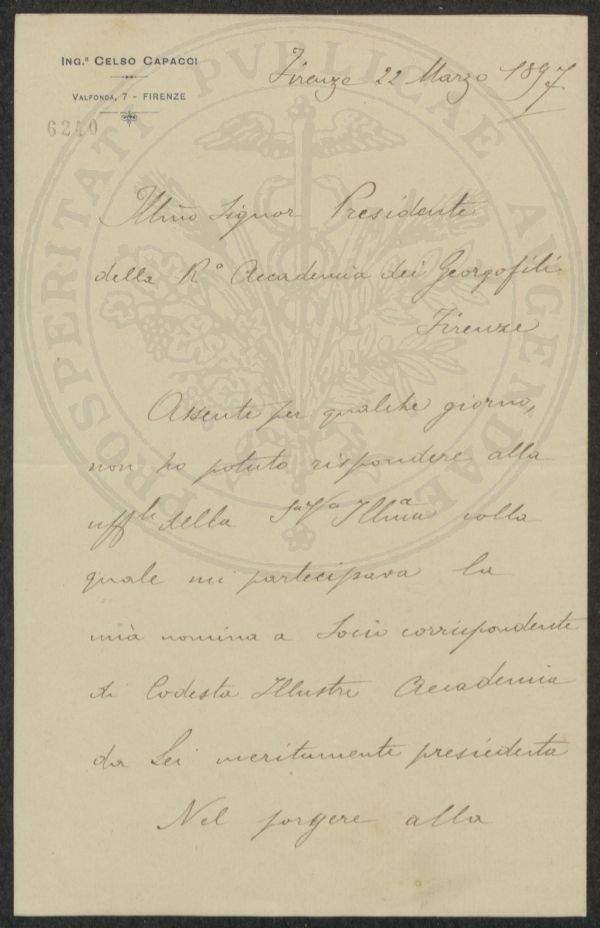 ING.ᴱ CELSO CAPACCI
VALFONDA, 7 - FIRENZE
6240
Firenze 22 Marzo 1897
Illmo Signor Presidente
della Rᵃ Accademia dei Georgofili
Firenze
Assente per qualche giorno,
non ho potuto rispondere alla
uffˡᵉ della S. V. Illma colla
quale mi partecipava la
mia nomina a Socio corrispondente
di Codesta Illustre Accademia
da Lei meritamente presieduta
Nel porgere alla
PROSPERITATI PVBLICAE AVGENDAE